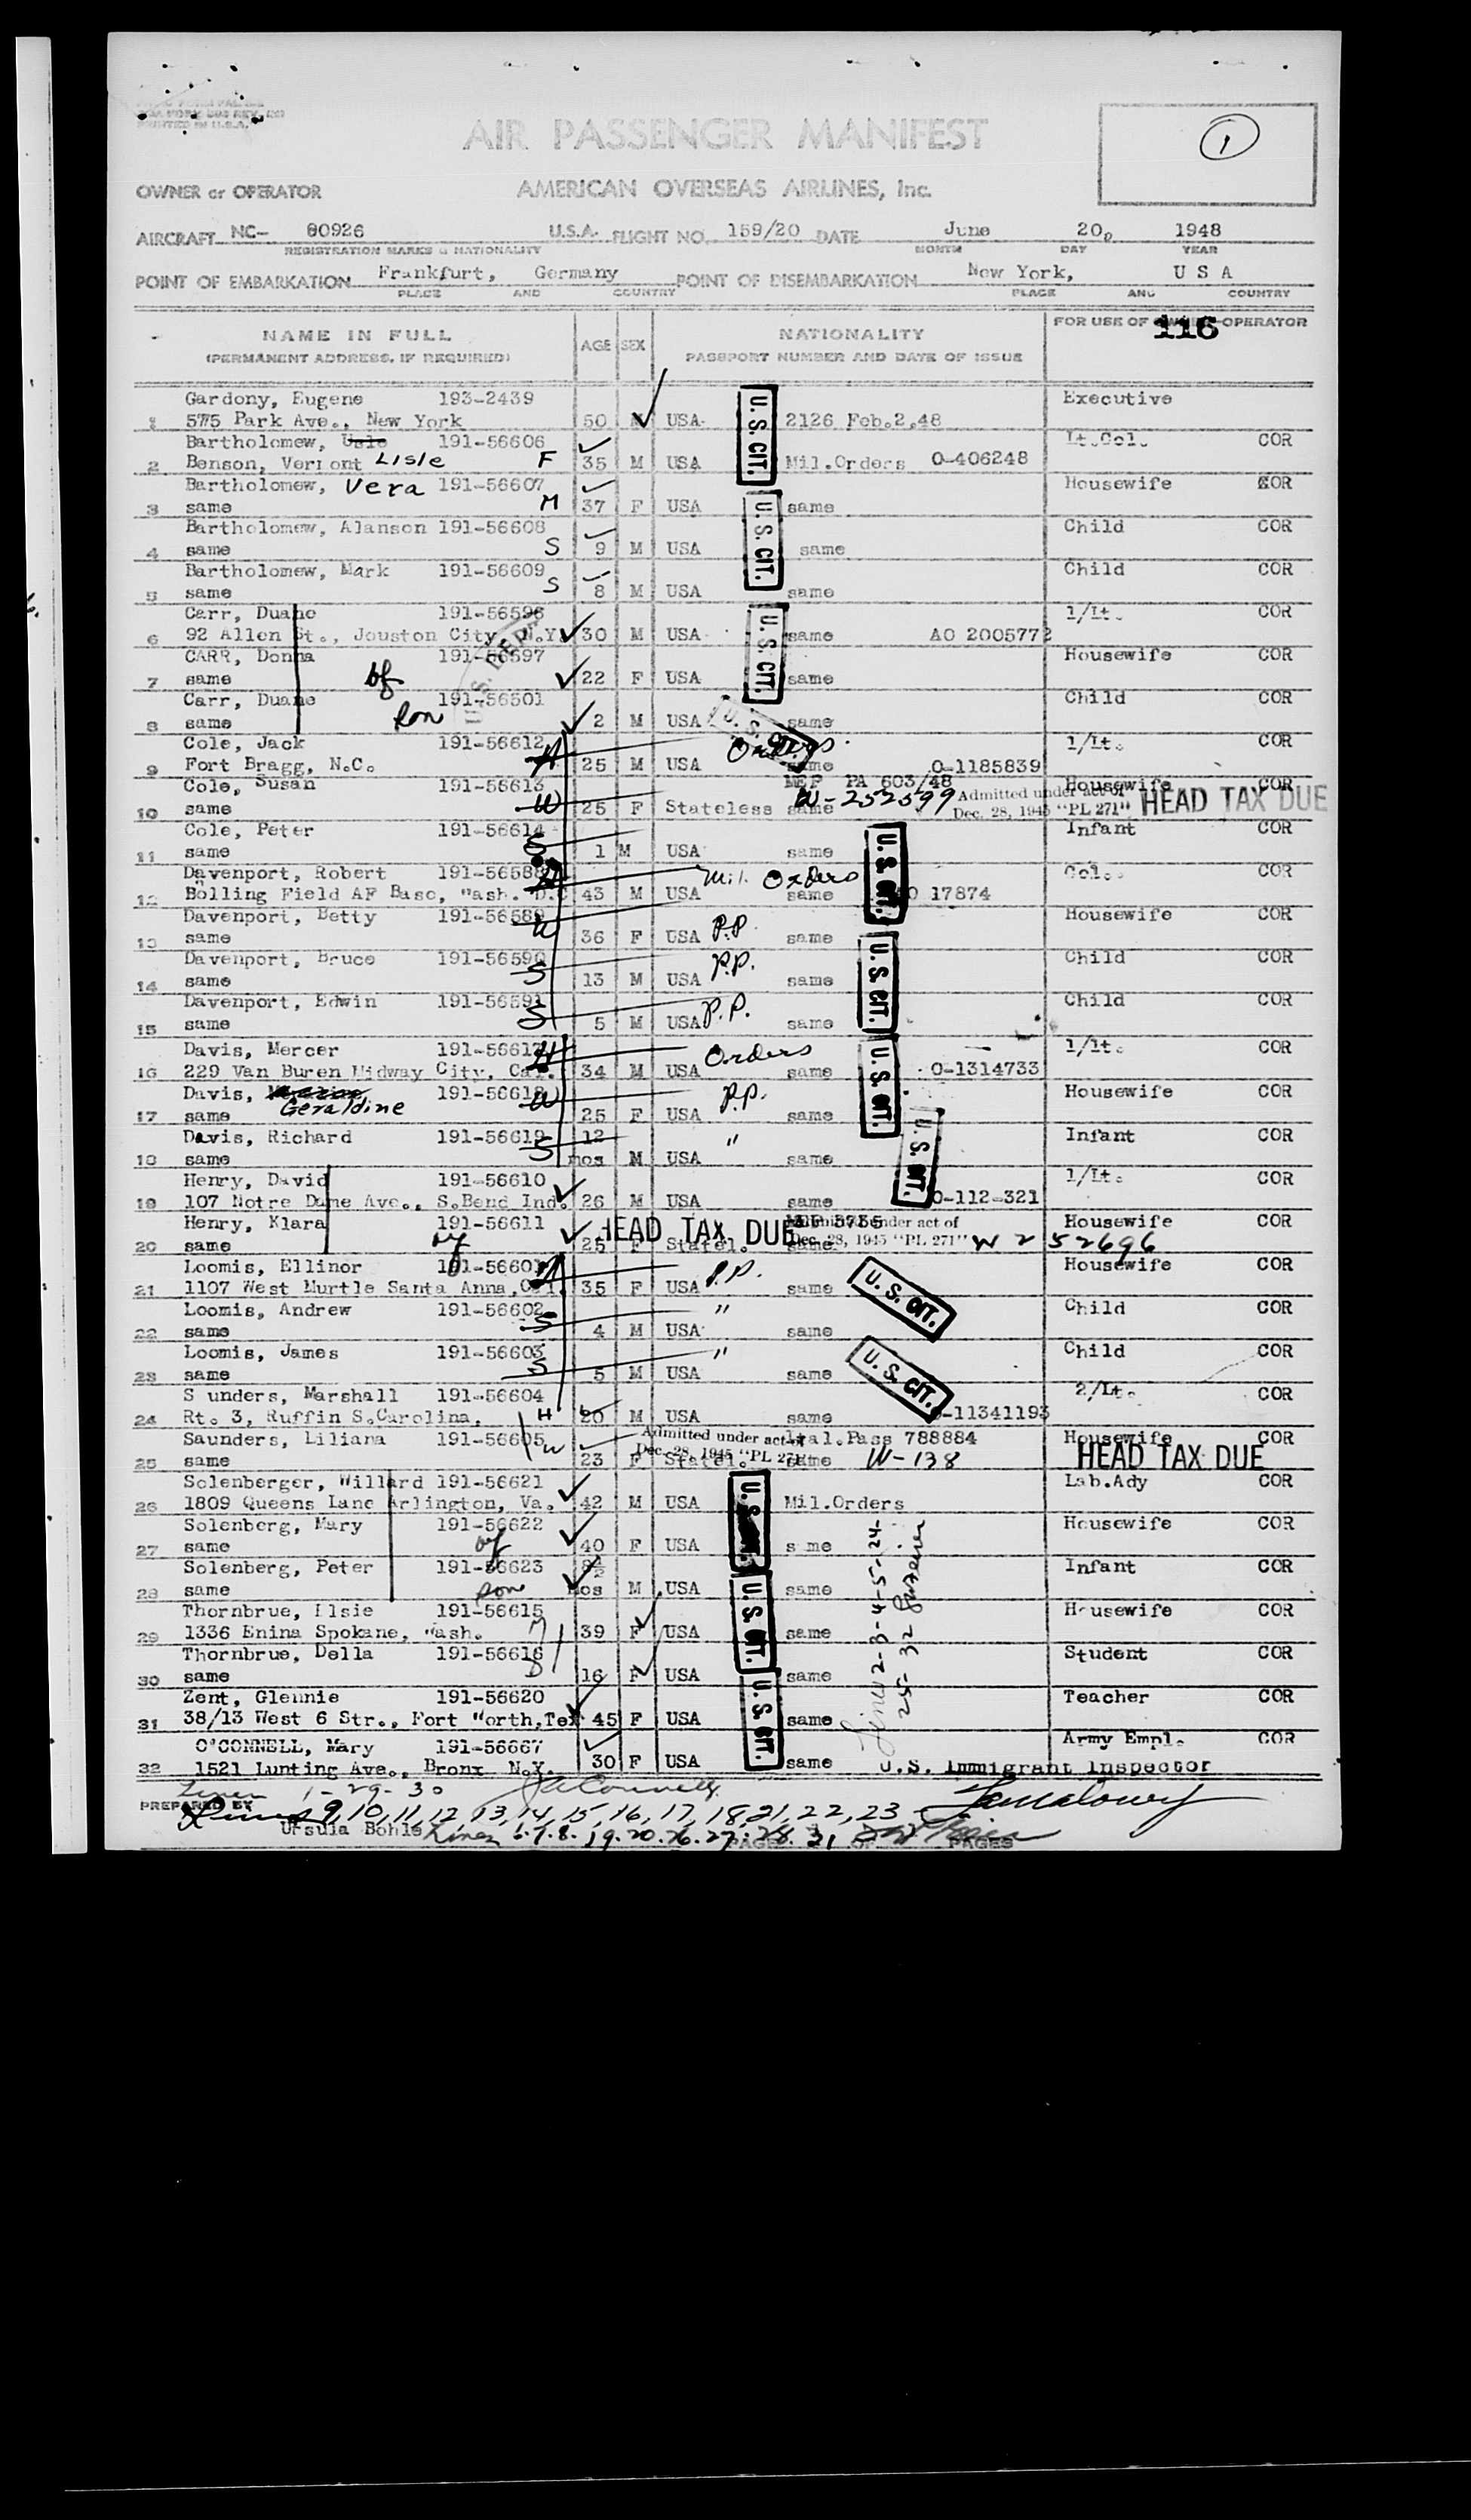 PRINTED IN U.S.A.
AIR PASSENGER MANIFEST
1
OWNER or OPERATOR AMERICAN OVERSEAS AIRLINES, Inc.
AIRCRAFT NC- 80926 U.S.A. FLIGHT NO. 159/20 DATE June 20, 1948
REGISTRATION MARKS & NATIONALITY MONTH DAY YEAR
POINT OF EMBARKATION Frankfurt, Germany POINT OF DISEMBARKATION New York, U S A
PLACE AND COUNTRY PLACE AND COUNTRY
NAME IN FULL AGE SEX NATIONALITY FOR USE OF OWNER-OPERATOR 116
(PERMANENT ADDRESS, IF REQUIRED) PASSPORT NUMBER AND DATE OF ISSUE
Gardony, Eugene 193-2439 Executive
1 575 Park Ave., New York 50 M USA U.S. CIT. 2126 Feb.2,48
Bartholomew, Usle 191-56606 Lt.Col. COR
2 Benson, Vermont Lisle F 35 M USA Mil.Orders O-406248
Bartholomew, Vera 191-56607 Housewife COR
3 same M 37 F USA U.S. CIT. same
Bartholomew, Alanson 191-56608 Child COR
4 same S 9 M USA same
Bartholomew, Mark 191-56609 Child COR
5 same S 8 M USA same
Carr, Duane 191-56596 1/Lt. COR
6 92 Allen St., Jouston City, N.Y. 30 M USA U.S. CIT. same AO 2005772
CARR, Donna 191-56597 Housewife COR
7 same wf 22 F USA same
Carr, Duane 191-56501 Child COR
8 same son 2 M USA U.S. CIT. same
Cole, Jack 191-56612 H Orders 1/Lt. COR
9 Fort Bragg, N.C. 25 M USA same O-1185839
Cole, Susan 191-56613 MEF PA 603/48 Housewife COR
10 same W 25 F Stateless same W-252599 Admitted under act of Dec. 28, 1945 "PL 271" HEAD TAX DUE
Cole, Peter 191-56614 Infant COR
11 same S 1 M USA same U.S. CIT.
Davenport, Robert 191-56588 H Mil. Orders Col. COR
12 Bolling Field AF Base, Wash. D.C 43 M USA same AO 17874
Davenport, Betty 191-56589 Housewife COR
13 same W 36 F USA P.P. same
Davenport, Bruce 191-56590 Child COR
14 same S 13 M USA P.P. same U.S. CIT.
Davenport, Edwin 191-56591 Child COR
15 same S 5 M USA P.P. same
Davis, Mercer 191-56617 H Orders 1/Lt. COR
16 229 Van Buren Midway City, Cal. 34 M USA same U.S. CIT. O-1314733
Davis, Geraldine 191-56618 Housewife COR
17 same W 25 F USA P.P. same
Davis, Richard 191-56619 12 Infant COR
18 same S mos M USA " same U.S. CIT.
Henry, David 191-56610 1/Lt. COR
19 107 Notre Dame Ave., S.Bend Ind. 26 M USA same O-112-321
Henry, Klara 191-56611 HEAD TAX DUE Admitted under act of Housewife COR
20 same wf 25 F Statel. same Dec. 28, 1945 "PL 271" W 252696
Loomis, Ellinor 191-56601 M Housewife COR
21 1107 West Murtle Santa Anna, Cal. 35 F USA P.P. same U.S. CIT.
Loomis, Andrew 191-56602 Child COR
22 same S 4 M USA " same
Loomis, James 191-56603 Child COR
23 same S 5 M USA " same U.S. CIT.
S unders, Marshall 191-56604 2/Lt. COR
24 Rt. 3, Ruffin S.Carolina, H 20 M USA same O-11341193
Saunders, Liliana 191-56605 Admitted under act of Ital.Pass 788884 Housewife COR
25 same W 23 F Statel. Dec. 28, 1945 "PL 271" same W-138 HEAD TAX DUE
Solenberger, Willard 191-56621 Lab.Ady COR
26 1809 Queens Lane Arlington, Va. 42 M USA U.S. CIT. Mil.Orders
Solenberg, Mary 191-56622 Housewife COR
27 same wf 40 F USA s me
Solenberg, Peter 191-56623 Infant COR
28 same son mos M USA same
Thornbrue, Elsie 191-56615 Housewife COR
29 1336 Enina Spokane, Wash. M 39 F USA U.S. CIT. same
Thornbrue, Della 191-56616 Student COR
30 same D 16 F USA same
Zent, Glennie 191-56620 Teacher COR
31 38/13 West 6 Str., Fort Worth, Tex 45 F USA U.S. CIT. same
O'CONNELL, Mary 191-56667 Army Empl. COR
32 1521 Lunting Ave., Bronx N.Y. 30 F USA same
Lines 2-3-4-5-24-
25-32
U.S. Immigrant Inspector
Lines 1-29-30
PREPARED BY
Lines 9,10,11,12,13,14,15,16,17,18,21,22,23
Ursula Bohle Lines 6.7.8.19.20.26.27.28.31
PAGE OF PAGES